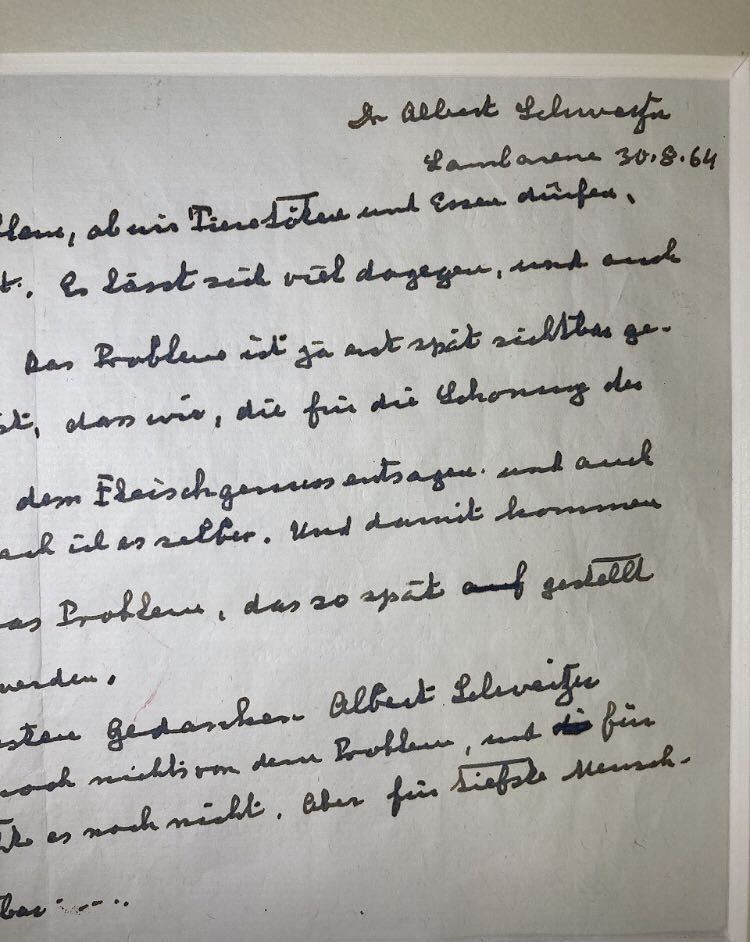 Dr Albert Schweitzer
Lambarene 30.8.64
blem, ob wir Tiere töten und Essen dürfen,
t. Es lässt sich viel dagegen, und auch
Das Problem ist ja erst spät sichtbar ge-
st, dass wir, die für die Schonung der
dem Fleischgenuss entsagen. und auch
ach ich es selber. Und damit kommen
as Problem, das so spät auf gestellt
werden.
sten Gedanken Albert Schweitzer
noch nichts von dem Problem, und für
es noch nicht. Aber für tiefste Mensch-
bar